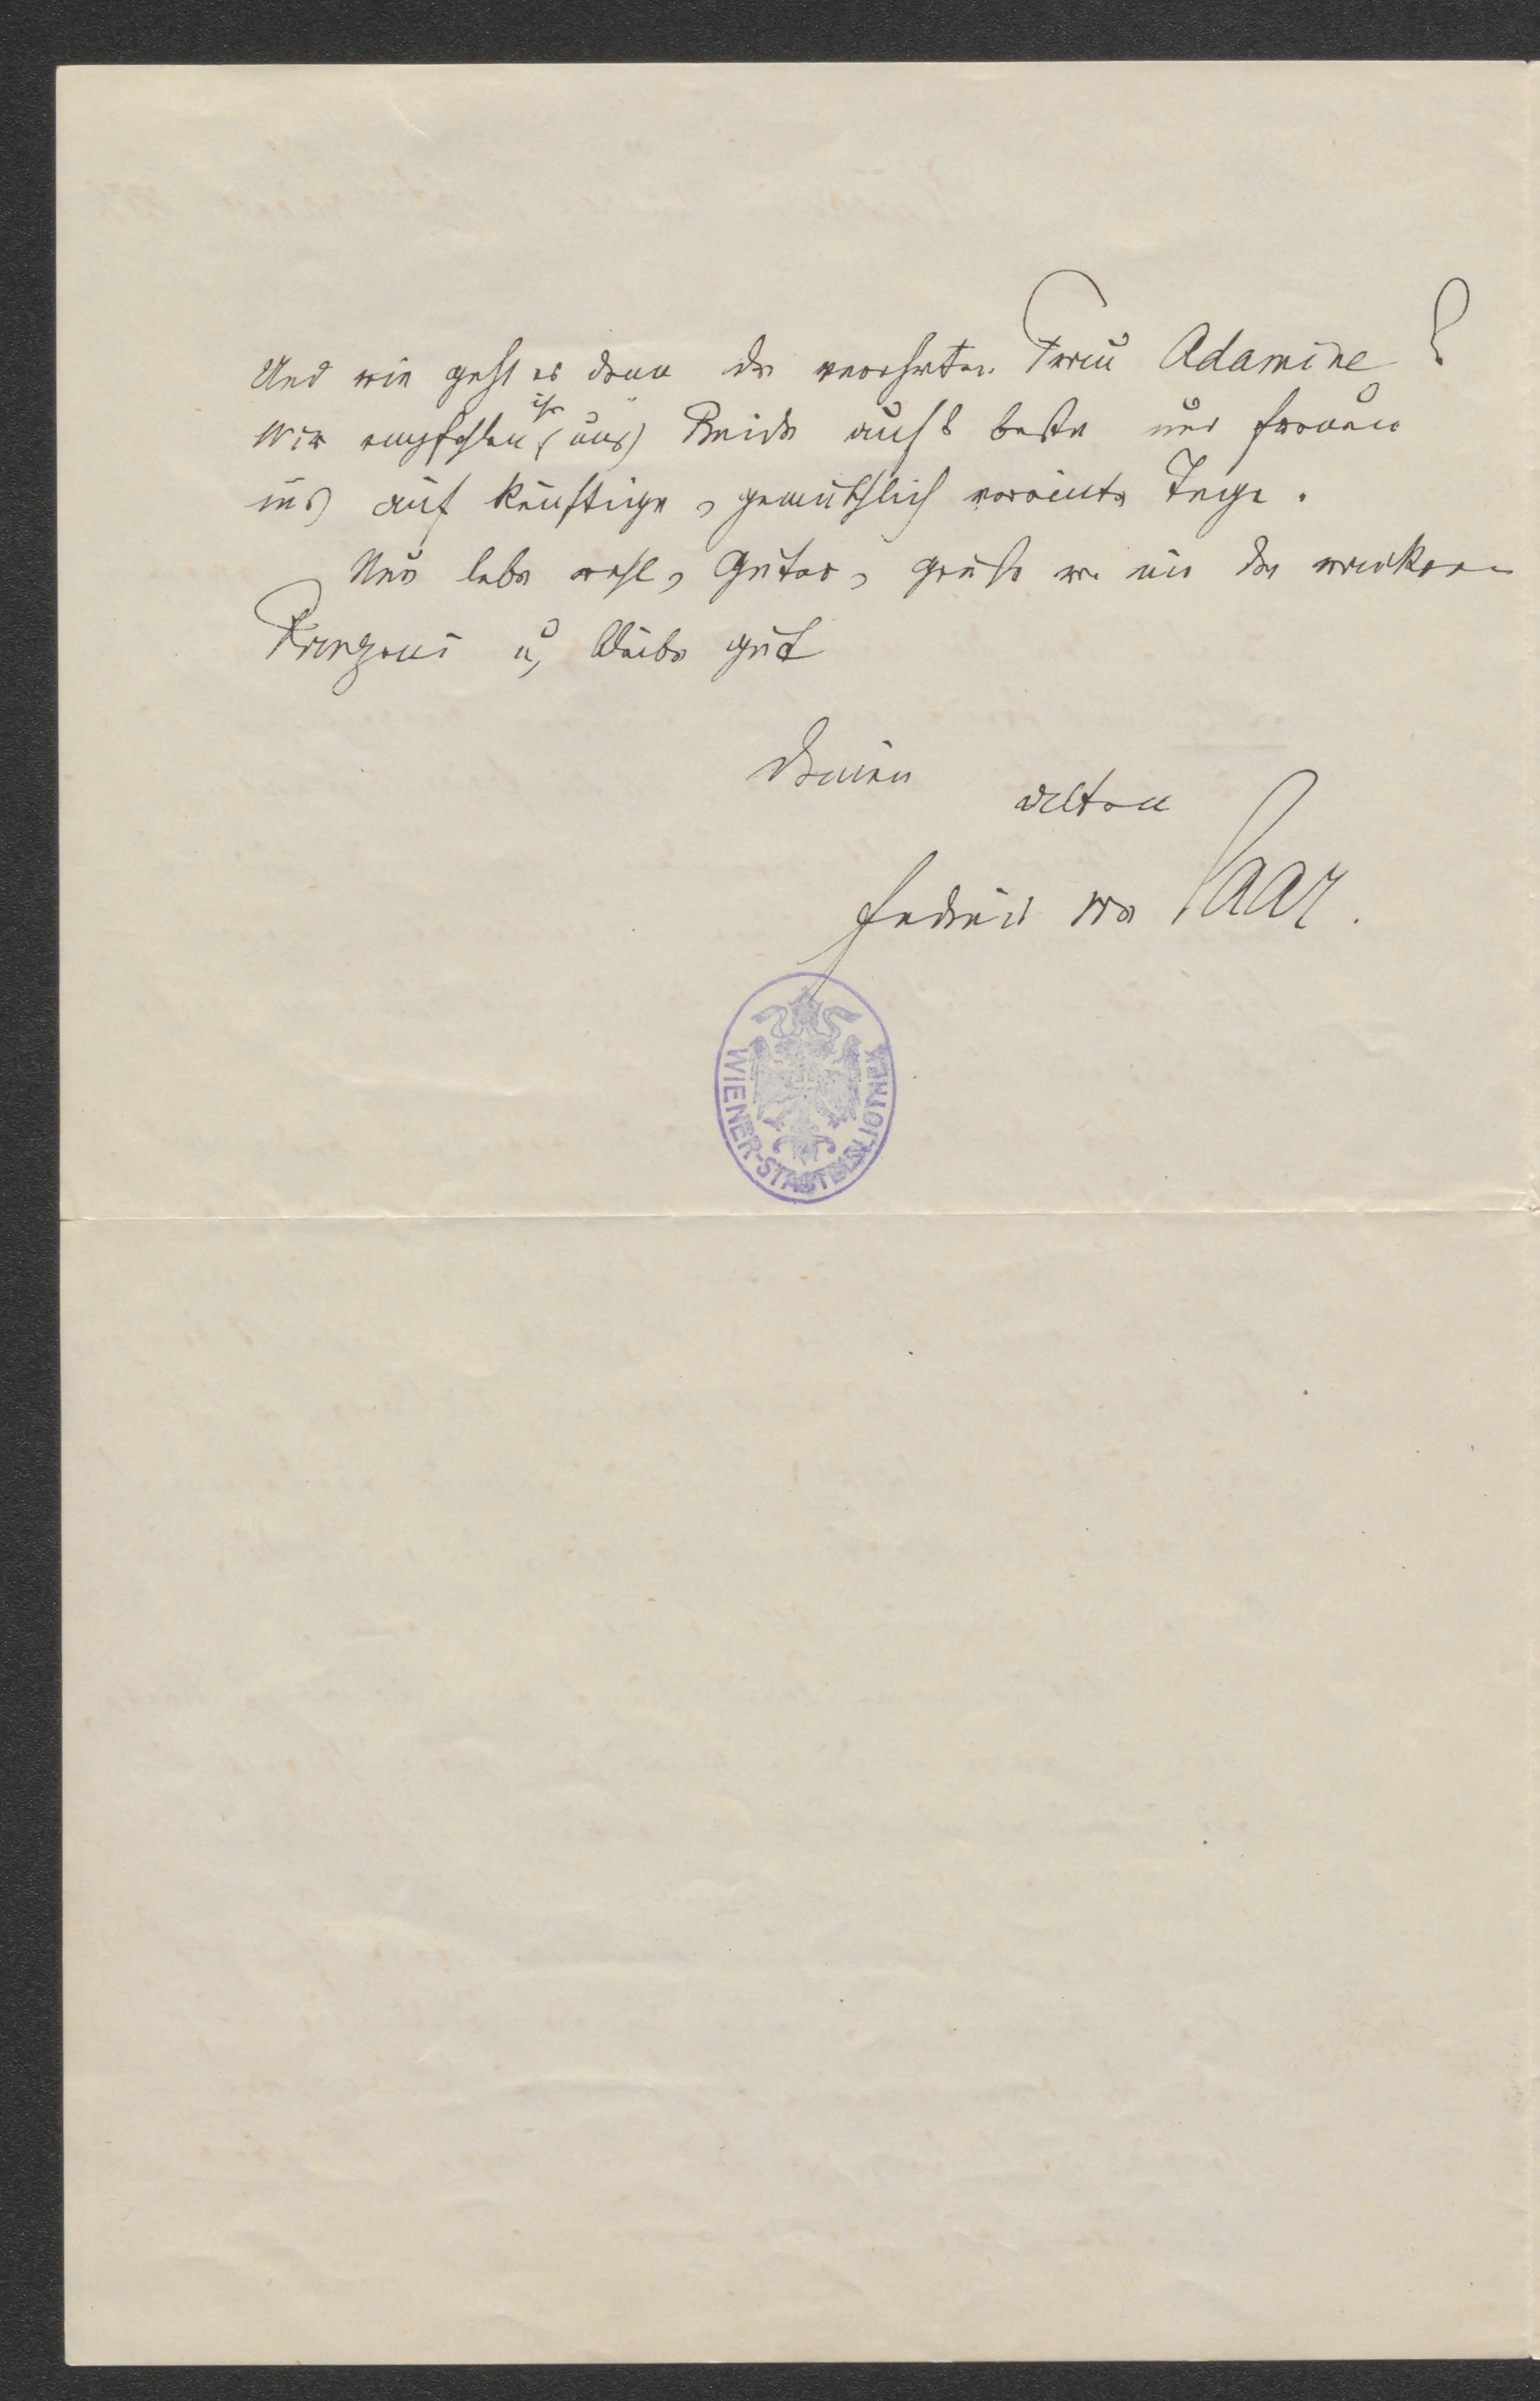 Und wie geht es denn der verehrten Frau Adamine?
Wir empfehlen ihr uns Beide aufs beste und freuen
uns auf künftige, gemüthlich vereinte Tage.
Nun lebe wohl, Guter, grüße mir den wackeren
u, bleibe gut
Deinem
alten
Ferdinand von Saar.
WIENER-STADTBIBLIOTHEK